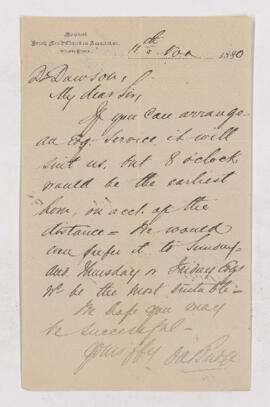 Montreal
11th Nov 1880
Dr Dawson,
My dear Sir,
If you can arrange
an Evg. Service it will
suit us, but 8 o'clock
would be the earliest
hour, on acct. of the
distance = We would
even prefer it to Sunday
and Thursday or Friday Evgs
wd be the most suitable -
We hope you may
be successful -
Yours ffy